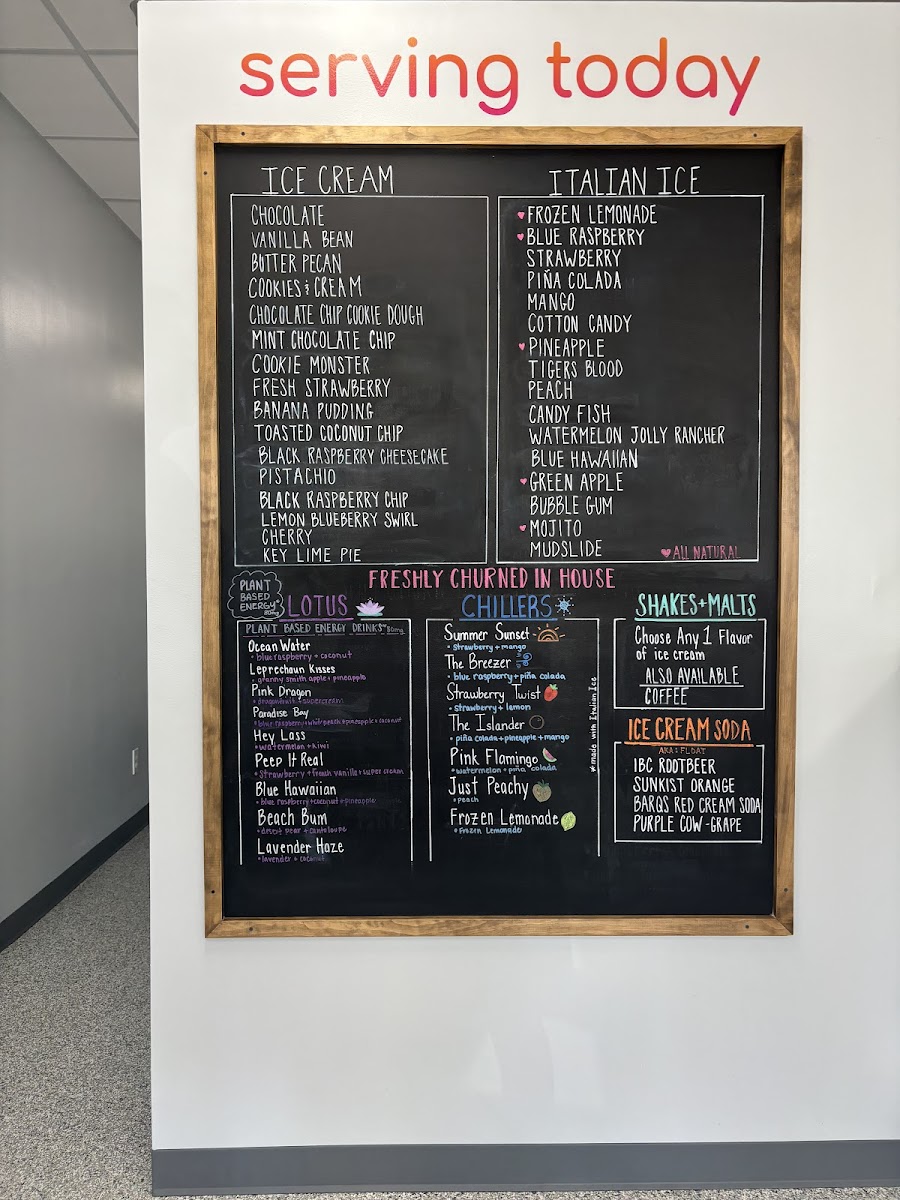 serving today
ICE CREAM
CHOCOLATE
VANILLA BEAN
BUTTER PECAN
COOKIES & CREAM
CHOCOLATE CHIP COOKIE DOUGH
MINT CHOCOLATE CHIP
COOKIE MONSTER
FRESH STRAWBERRY
BANANA PUDDING
TOASTED COCONUT CHIP
BLACK RASPBERRY CHEESECAKE
PISTACHIO
BLACK RASPBERRY CHIP
LEMON BLUEBERRY SWIRL
CHERRY
KEY LIME PIE
ITALIAN ICE
♥ FROZEN LEMONADE
♥ BLUE RASPBERRY
STRAWBERRY
PIÑA COLADA
MANGO
COTTON CANDY
♥ PINEAPPLE
TIGERS BLOOD
PEACH
CANDY FISH
WATERMELON JOLLY RANCHER
BLUE HAWAIIAN
♥ GREEN APPLE
BUBBLE GUM
♥ MOJITO
MUDSLIDE
♥ ALL NATURAL
FRESHLY CHURNED IN HOUSE
PLANT
BASED
ENERGY
80mg
LOTUS
PLANT BASED ENERGY DRINKS 80mg
Ocean Water
• blue raspberry + coconut
Leprechaun Kisses
• granny smith apple + pineapple
Pink Dragon
• dragonfruit + supercream
Paradise Bay
• blue raspberry + white peach + pineapple + coconut
Hey Lass
• watermelon + kiwi
Peep It Real
• strawberry + french vanilla + super cream
Blue Hawaiian
• blue raspberry + coconut + pineapple
Beach Bum
• desert pear + cantaloupe
Lavender Haze
• lavender + coconut
CHILLERS
Summer Sunset
• strawberry + mango
The Breezer
• blue raspberry + piña colada
Strawberry Twist
• strawberry + lemon
The Islander
• piña colada + pineapple + mango
Pink Flamingo
• watermelon + piña colada
Just Peachy
• peach
Frozen Lemonade
• Frozen Lemonade
* made with Italian Ice
SHAKES + MALTS
Choose Any 1 Flavor
of ice cream
ALSO AVAILABLE
COFFEE
ICE CREAM SODA
AKA: FLOAT
IBC ROOTBEER
SUNKIST ORANGE
BARQS RED CREAM SODA
PURPLE COW - GRAPE